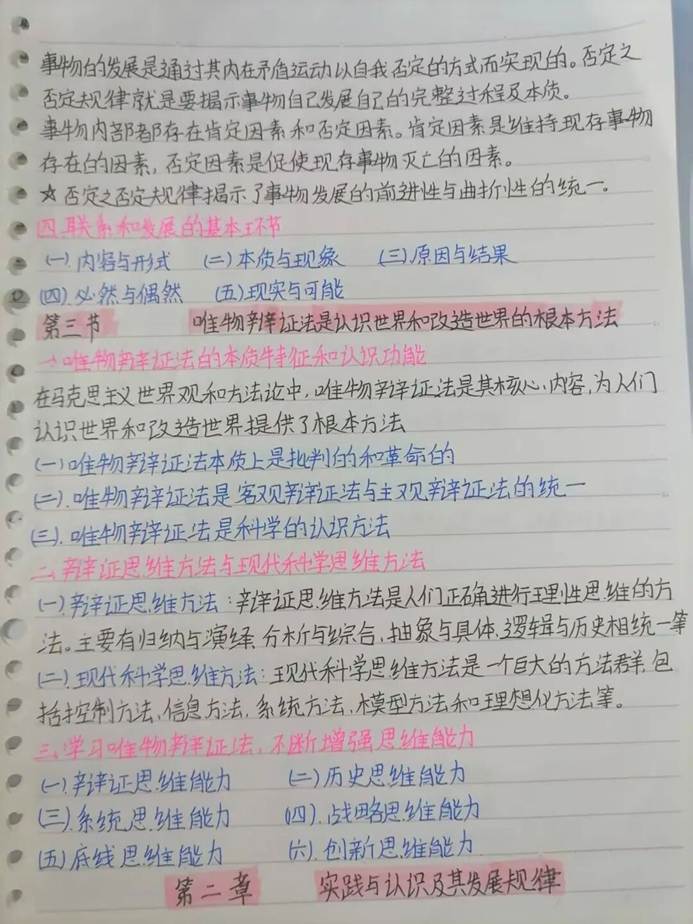 事物的发展是通过其内在矛盾运动以自我否定的方式而实现的。否定之
否定规律就是要揭示事物自己发展自己的完整过程及本质。
事物内部都存在肯定因素和否定因素。肯定因素是维持现存事物
存在的因素，否定因素是促使现存事物灭亡的因素。
☆否定之否定规律揭示了事物发展的前进性与曲折性的统一。
四.联系和发展的基本环节
(一).内容与形式 (二)本质与现象 (三)原因与结果
(四).必然与偶然 (五).现实与可能
第三节 唯物辩证法是认识世界和改造世界的根本方法
一、唯物辩证法的本质特征和认识功能
在马克思主义世界观和方法论中，唯物辩证法是其核心内容，为人们
认识世界和改造世界提供了根本方法
(一)唯物辩证法本质上是批判的和革命的
(二).唯物辩证法是客观辩证法与主观辩证法的统一
(三).唯物辩证法是科学的认识方法
二、辩证思维方法与现代科学思维方法
(一).辩证思维方法：辩证思维方法是人们正确进行理性思维的方
法。主要有归纳与演绎,分析与综合,抽象与具体,逻辑与历史相统一等
(二).现代科学思维方法：现代科学思维方法是一个巨大的方法群,包
括控制方法、信息方法、系统方法、模型方法和理想化方法等。
三、学习唯物辩证法，不断增强思维能力
(一).辩证思维能力 (二)历史思维能力
(三).系统思维能力 (四).战略思维能力
(五)底线思维能力 (六).创新思维能力
第二章 实践与认识及其发展规律